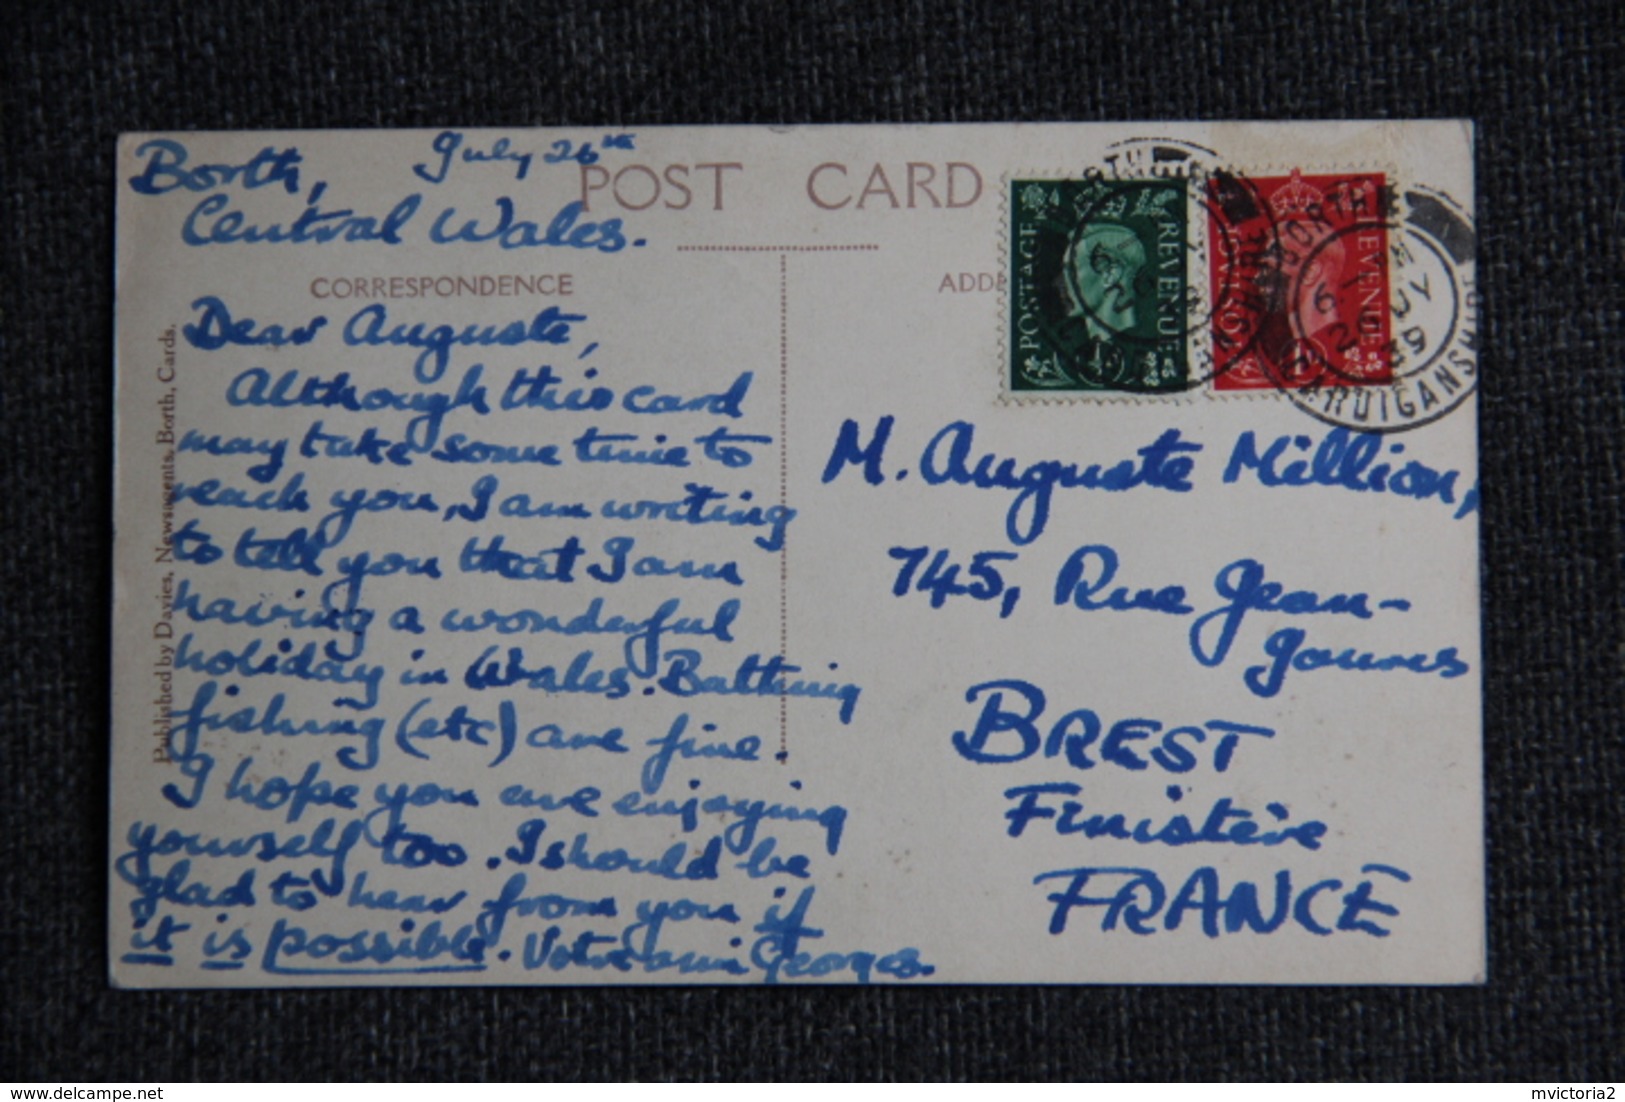 Borth, July 26th
Central Wales.
POST CARD
CORRESPONDENCE
ADD
Published by Davies, Newsagents, Borth, Cards.
Dear Auguste,
Although this card
may take some time to
reach you, I am writing
to tell you that I am
having a wonderful
holiday in Wales. Bathing
fishing (etc) are fine.
I hope you are enjoying
yourself too. I should be
glad to hear from you if
it is possible. Votre ami Georges.
POSTAGE REVENUE
REVENUE
BORTH
6 15 AM
26 JY
39
CARDIGANSHIRE
M. Auguste Million,
745, Rue Jean-
Jaures
BREST
Finistère
FRANCE
delcampe.net
mvictoria2